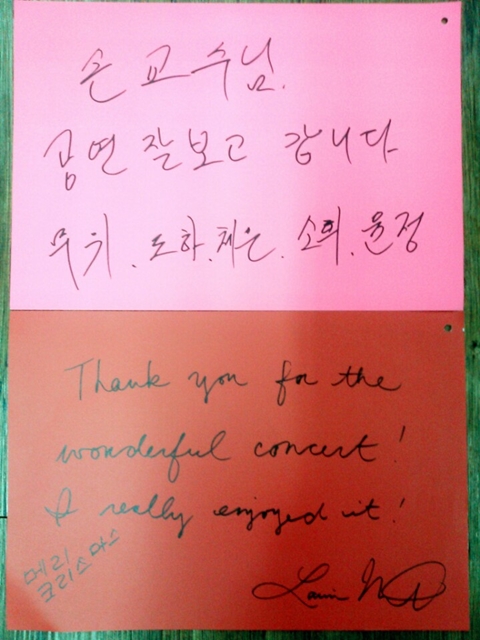 손교수님.
공연 잘보고 갑니다
무치. 도하. 체은. 소희. 윤정
Thank you for the
wonderful concert!
I really enjoyed it!
메리
크리스마스